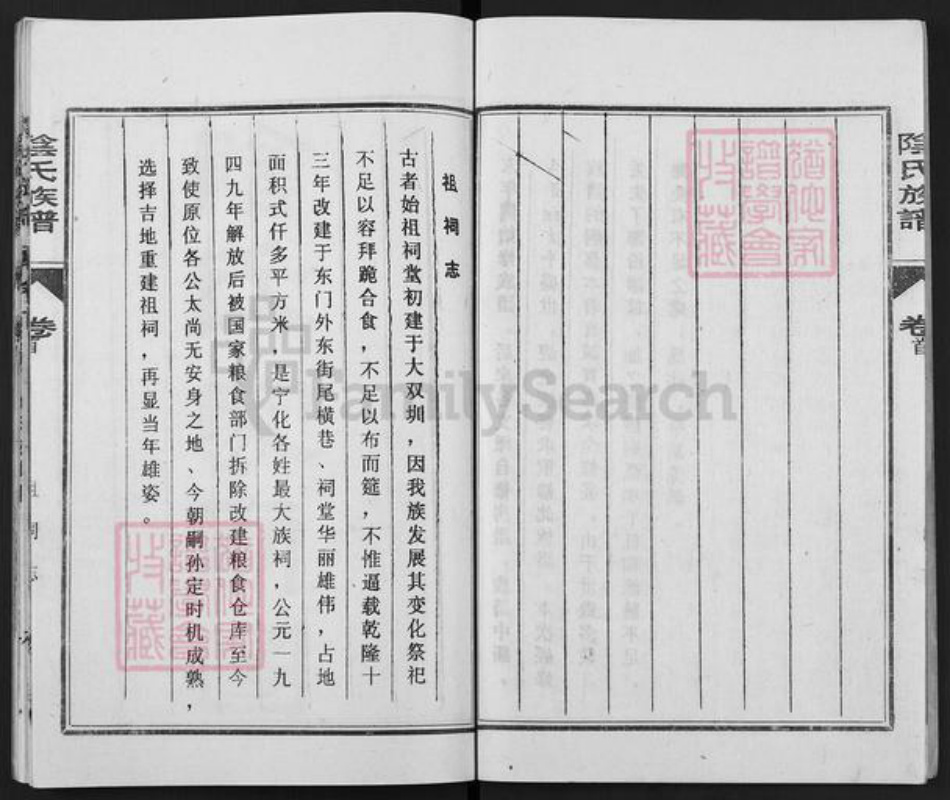 陰氏族譜
卷首
祖祠志
古者始祖祠堂初建于大双圳，因我族发展其变化祭祀
不足以容拜跪合食，不足以布而筵，不惟逼载乾隆十
三年改建于东门外东街尾横巷、祠堂华丽雄伟，占地
面积式仟多平方米，是宁化各姓最大族祠，公元一九
四九年解放后被国家粮食部门拆除改建粮食仓库至今
致使原位各公太尚无安身之地、今朝嗣孙定时机成熟，
选择吉地重建祖祠，再显当年雄姿。
陰氏族譜
卷首
FamilySearch